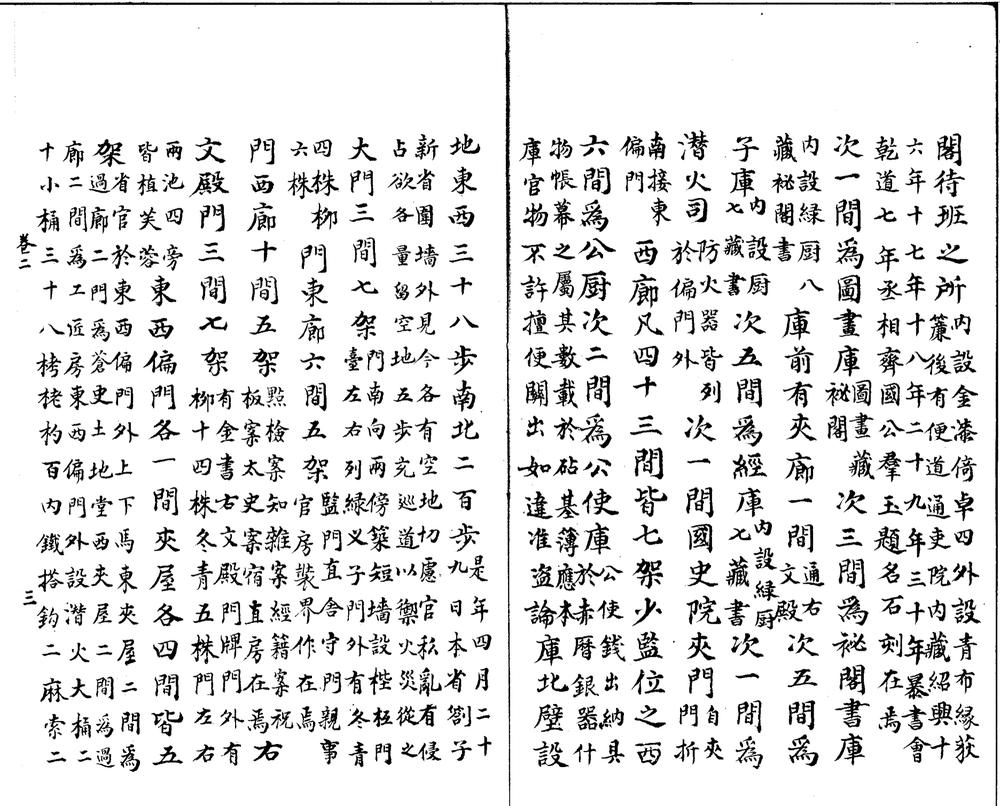 閣待班之所內設金漆倚卓四外設青布緣荻簾後有便道通吏院內藏紹興十
六年十七年十八年二十九年三十年暴書會乾道七年丞相齊國公羣玉題名石刻在焉
次一間爲圖畫庫圖畫藏秘閣次三間爲祕閣書庫
內設緑厨八藏祕閣書庫前有夾廊一間通右文殿次五間爲
子庫內設厨七藏書次五間爲經庫內設緑厨七藏書次一間爲
潜火司防火器皆列於偏門外次一間國史院夾門自夾門折
南接東偏門西廊凡四十三間皆七架少監位之西
六間爲公厨次二間爲公使庫公使錢出納具於赤曆銀器什
物帳幕之屬其數載於砧基簿應本庫官物不許擅便關出如違准盜論庫北壁設
地東西三十八步南北二百步是年四月二十九日本省劄子
新省圍墻外見今各有空地切慮官私亂有侵占欲各量留空地五步充巡道以禦火災從之
大門三間七架門南向兩傍築短墻設梐枑門臺左右列緑义子門外有冬青
四株柳六株門東廊六間五架監門直舍守門親事官房裝界作在焉
門西廊十間五架點檢案知雜案經籍案祝板案太史案宿直房在焉右
文殿門三間七架有金書右文殿門牌門外有柳十四株冬青五株門左右
兩池四旁皆植芙蓉東西偏門各一間夾屋各四間皆五
架省官於東西偏門外上下馬東夾屋二間爲過廊二門爲蒼史土地堂西夾屋二間爲過
廊二間爲工匠房東西偏門外設潜火大桶二十小桶三十八栲栳杓百內鐵搭鈎二麻索二
卷二
三